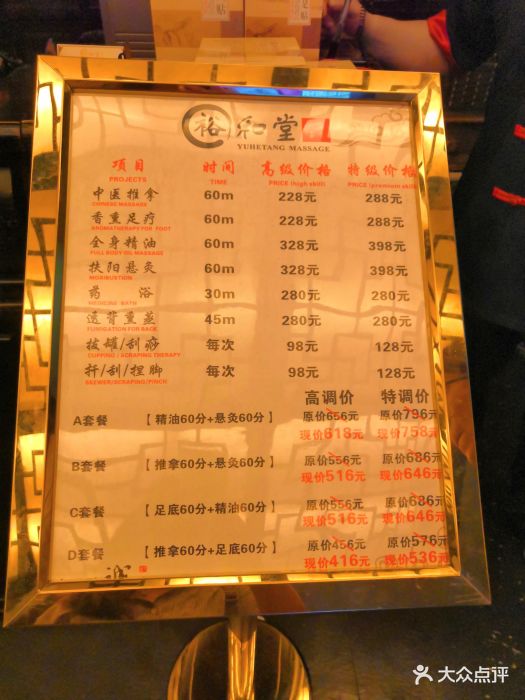 裕和堂
YUHETANG MASSAGE
项目 时间 高级价格 特级价格
PROJECTS TIME PRICE (high skill) PRICE (premium skill)
中医推拿 60m 228元 288元
CHINESE MASSAGE
香熏足疗 60m 228元 288元
AROMATHERAPY FOR FOOT
全身精油 60m 328元 398元
FULL BODY OIL MASSAGE
扶阳悬灸 60m 328元 398元
MOXIBUSTION
药浴 30m 280元 280元
MEDICINE BATH
透背熏蒸 45m 280元 280元
FUMIGATION FOR BACK
拔罐/刮痧 每次 98元 128元
CUPPING / SCRAPING THERAPY
扦/刮/捏脚 每次 98元 128元
SKEWER/SCRAPING/PINCH
高调价 特调价
A套餐 【精油60分+悬灸60分】 原价656元 原价796元
现价618元 现价758元
B套餐 【推拿60分+悬灸60分】 原价556元 原价686元
现价516元 现价646元
C套餐 【足底60分+精油60分】 原价556元 原价686元
现价516元 现价646元
D套餐 【推拿60分+足底60分】 原价456元 原价576元
现价416元 现价536元
大众点评